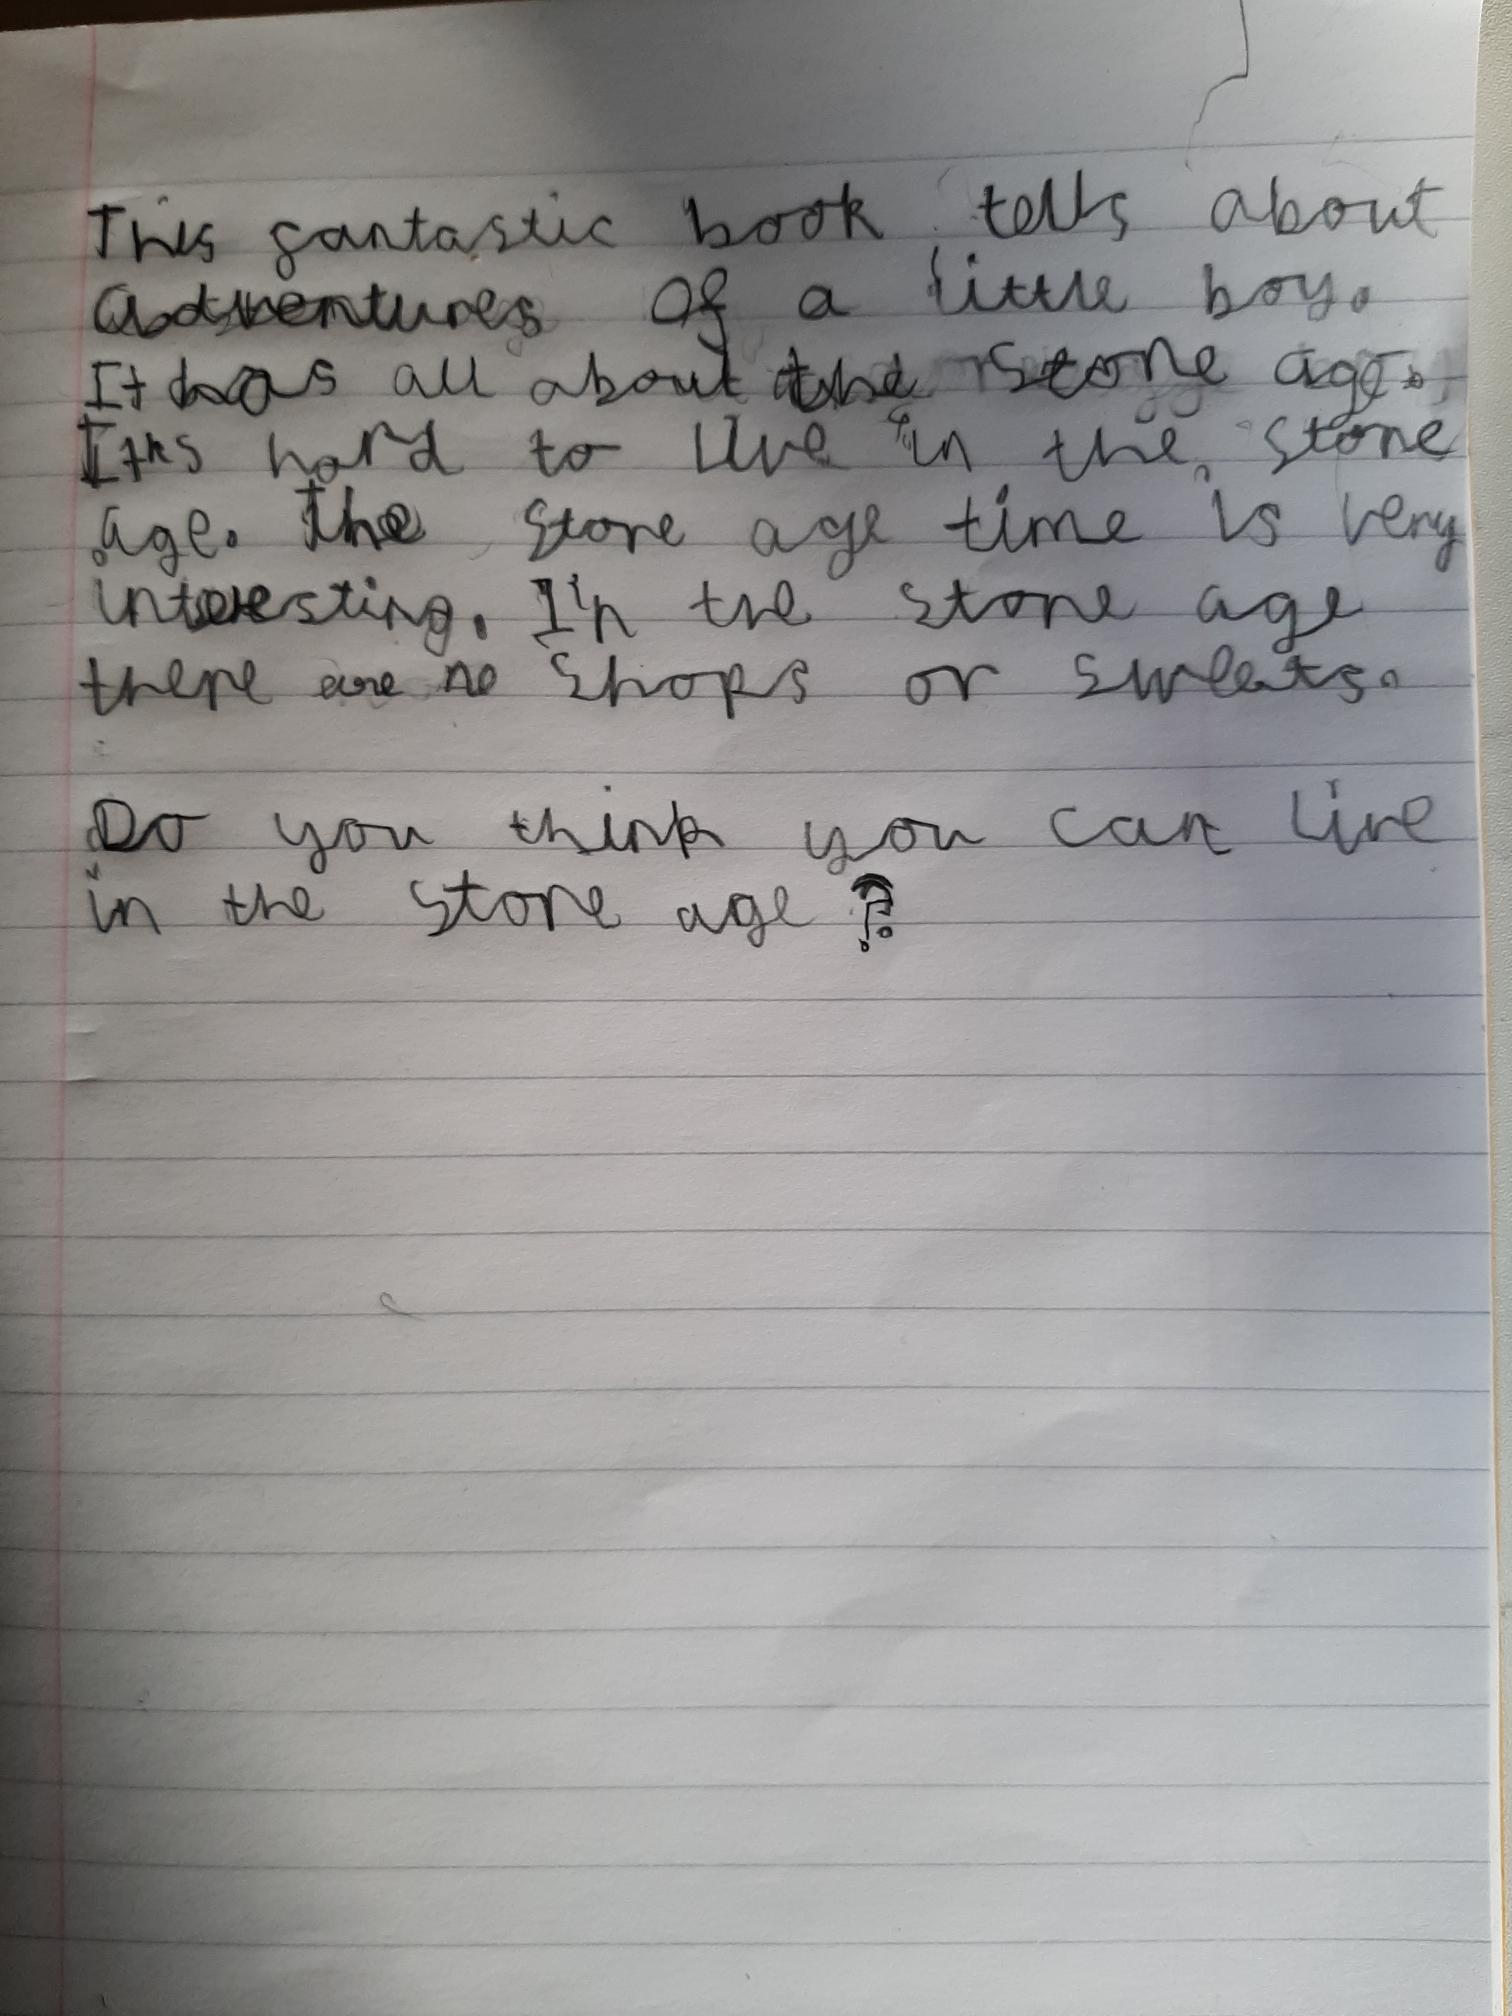 This fantastic book tells about
adventures of a little boy.
It has all about the stone age.
Its hard to live in the stone
age. The stone age time is very
interesting. In the stone age
there are no shops or sweets.
Do you think you can live
in the stone age?